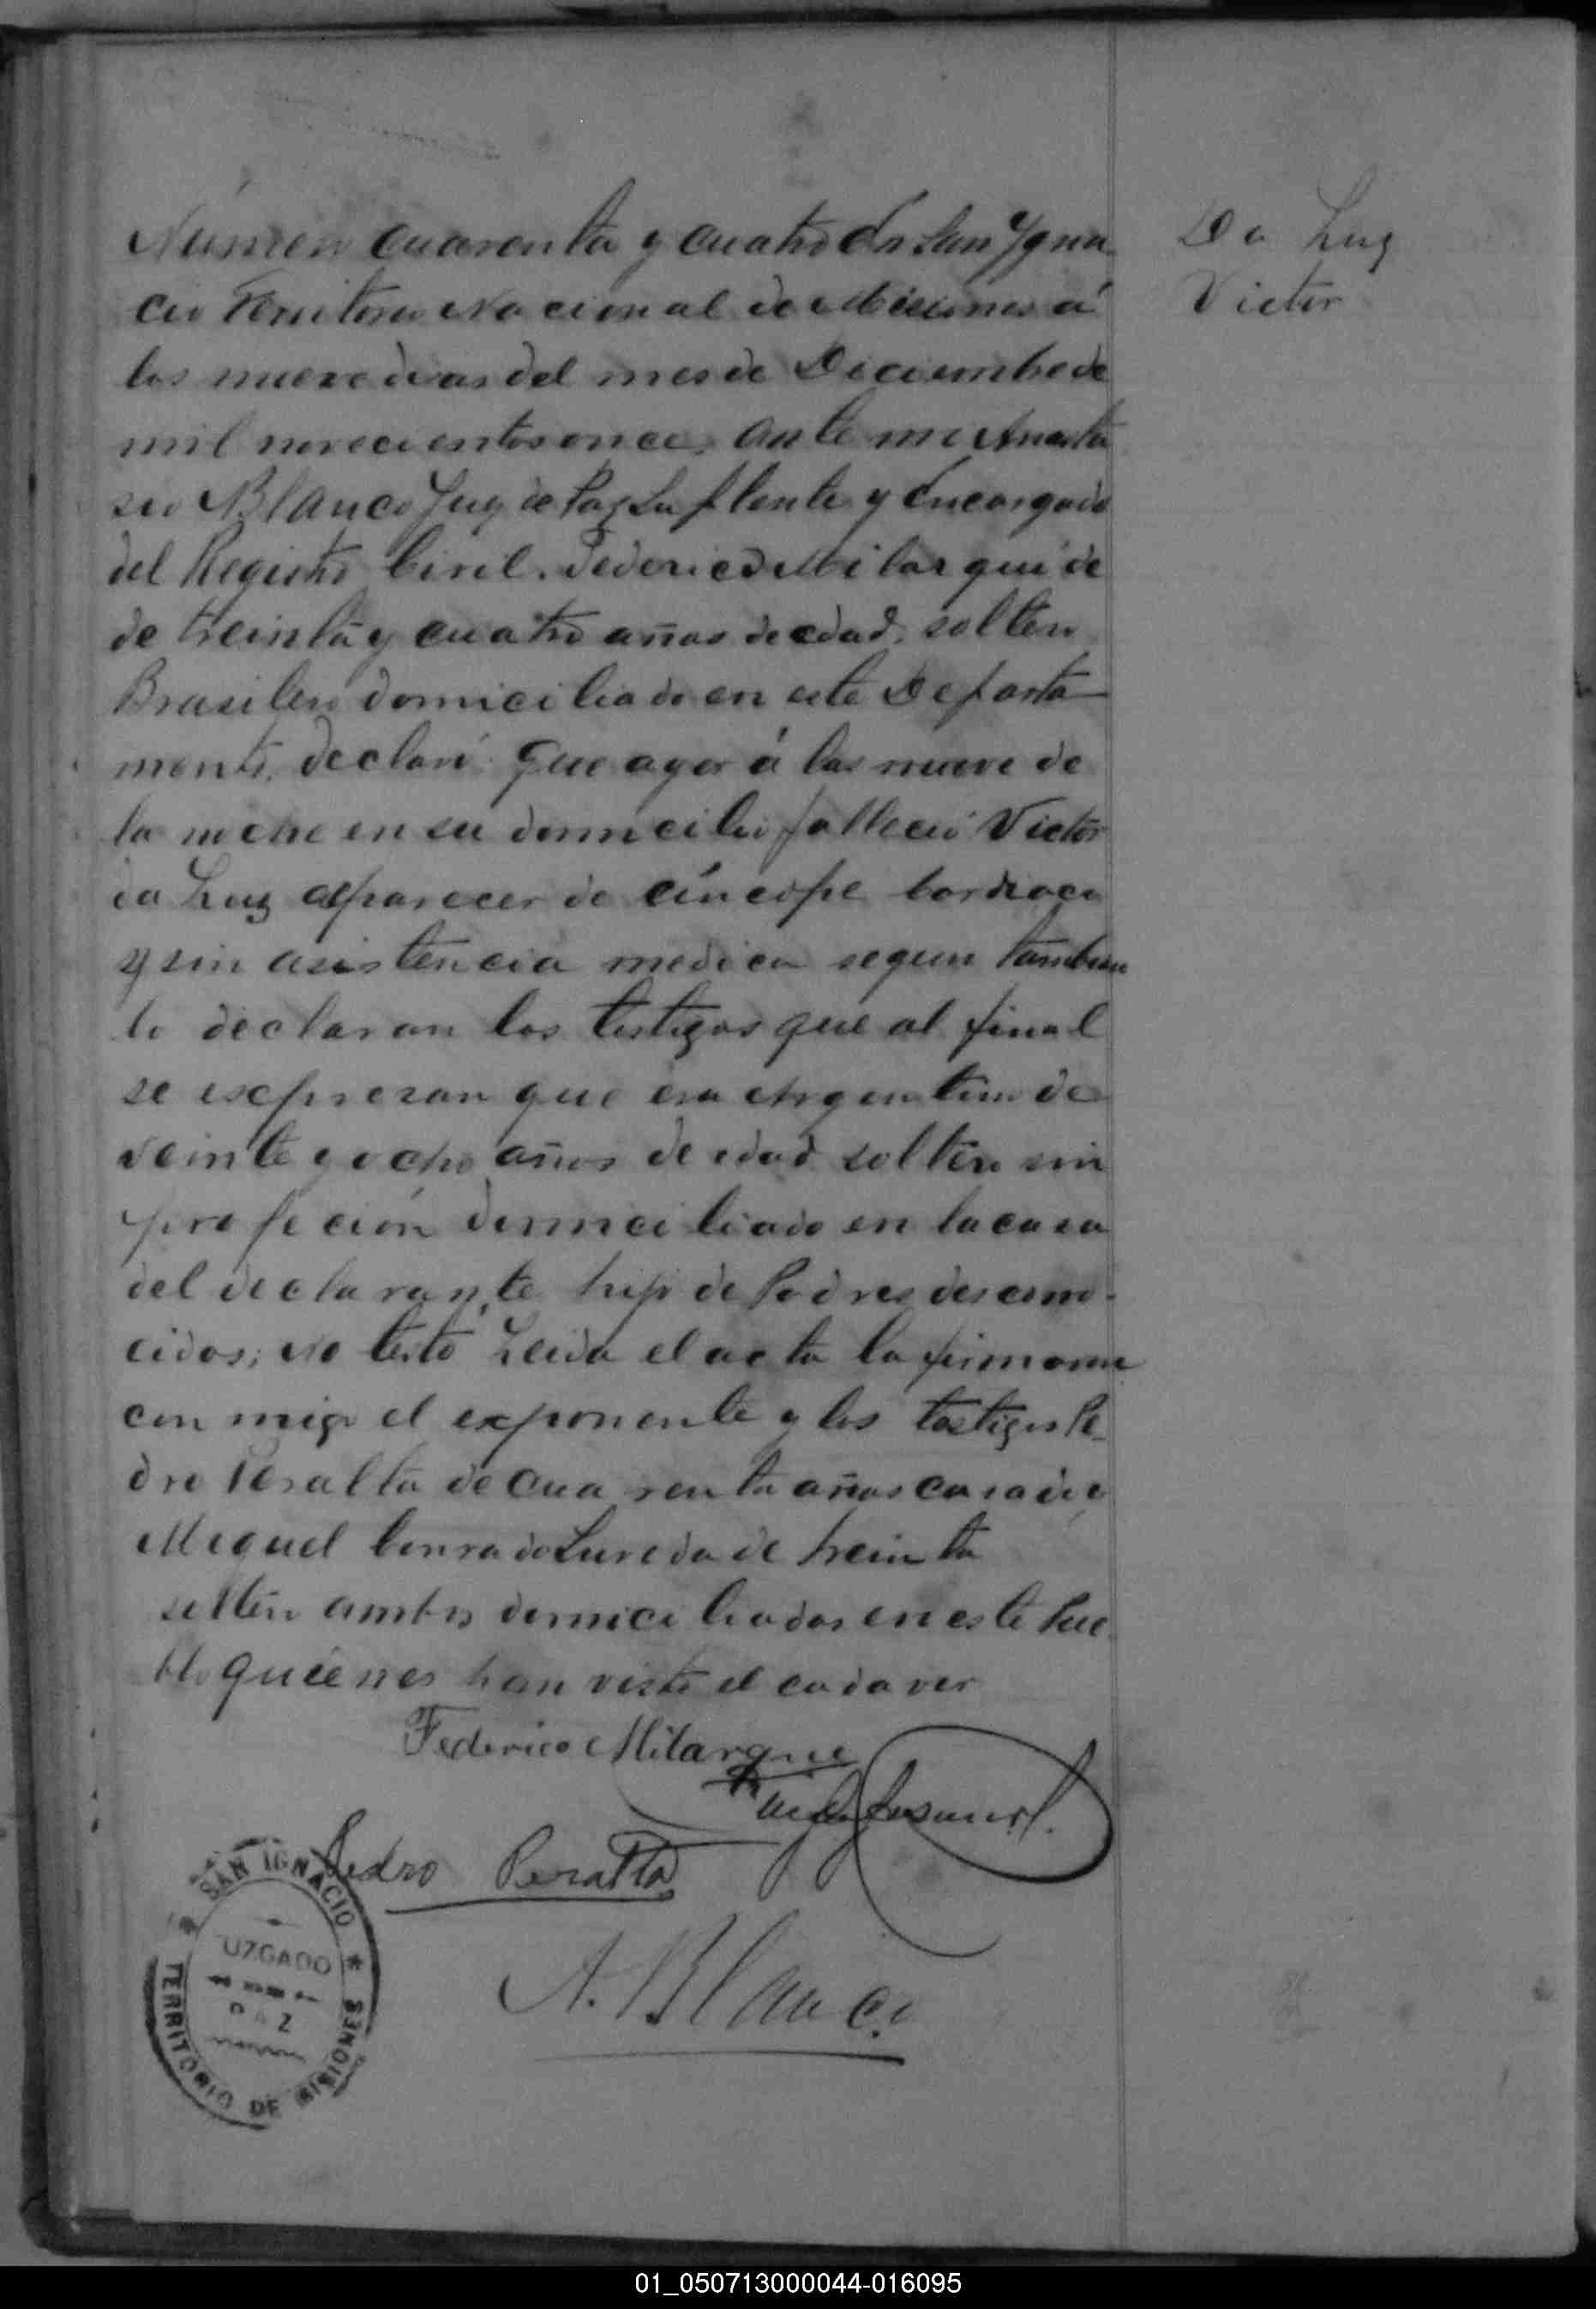 Da Luz
Victor
Número cuarenta y cuatro En San Ygna
cio Territorio Nacional de Misiones á
los nueve dias del mes de Diciembre de
mil novecientos once, ante mi Anasta
sio Blanco Juez de Paz Suplente y Encargado
del Registro Civil. Federico Milarque de
de treinta y cuatro años de edad, soltero
Brasilero domiciliado en este Departa
mento, declaró: Que ayer á las nueve de
la noche en su domicilio falleció Victor
da Luz aparecer de cíncope cardiaco
y sin asistencia medica segun tambien
lo declaran los testigos que al final
se expresan que era Argentino de
veinte y ocho años de edad soltero sin
profeción domiciliado en la casa
del declarante hijo de Padres descono-
cidos; No testó Leida el acta la firmaron
con migo el exponente y los testigos Pe
dro Peralta de cuarenta años casado, y
Miguel Conrado de treinta
soltero ambos domiciliados en este Pue
blo quiénes han visto el cadaver
Federico Milarque
Pedro Peralta
A. Blanco
SAN IGNACIO
JUZGADO
PAZ
TERRITORIO DE MISIONES
01_050713000044-016095